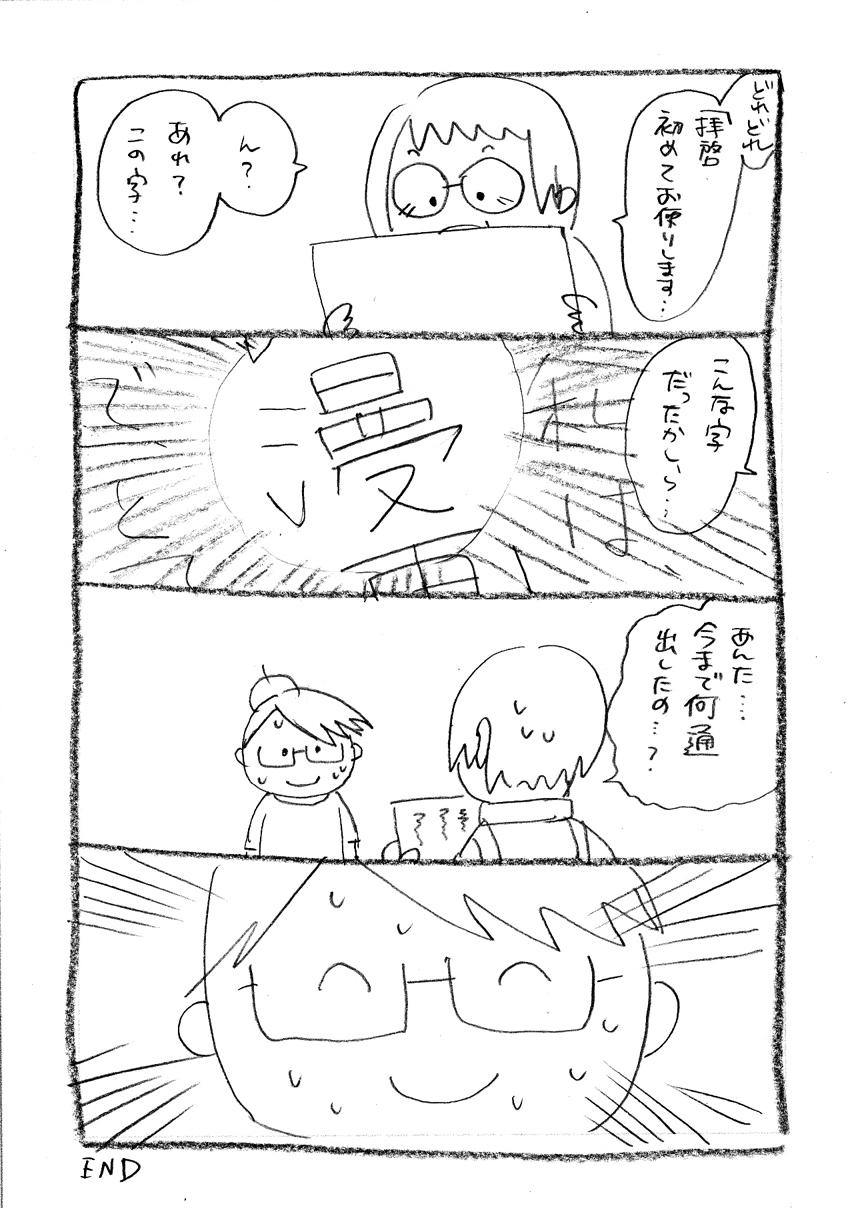 どれどれ
「拝啓
初めてお便りします…
ん?
あれ?
この字…
こんな字
だったかしら…
私は
漫画
あんた…
今まで何通
出したの…?
END